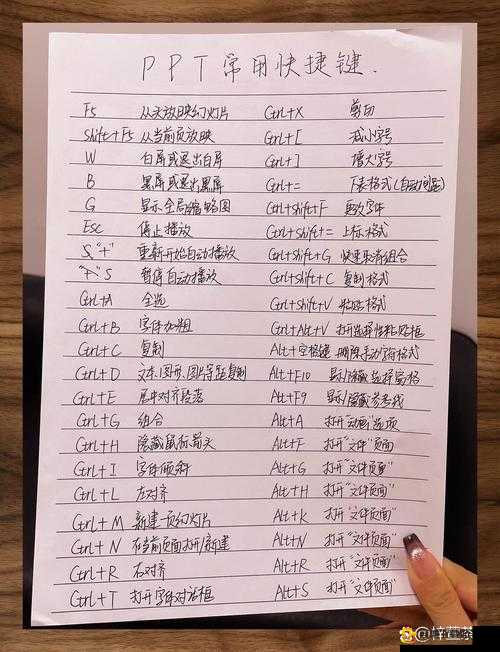 PPT常用快捷键.
F5 从头放映幻灯片 Ctrl+X 剪切
Shift+F5 从当前页放映 Ctrl+[ 减小字号
W 白屏或退出白屏 Ctrl+] 增大字号
B 黑屏或退出黑屏 Ctrl+= 下标格式(自动间距)
G 显示全局缩略图 Ctrl+Shift+F 更改字体
Esc 停止播放 Ctrl+Shift+= 上标格式
S,"+" 重新开始自动播放 Ctrl+Shift+G 快速取消组合
S 暂停自动播放 Ctrl+Shift+C 复制格式
Ctrl+A 全选 Ctrl+Shift+V 粘贴格式
Ctrl+B 字体加粗 Ctrl+Alt+V 打开选择性粘贴框
Ctrl+C 复制 Alt+空格键 删除手动字符格式
Ctrl+D 文本、图形、图片等是复制 Alt+F10 显/隐藏选择窗格
Ctrl+E 居中对齐段落 Alt+F9 显/隐藏参考线
Ctrl+G 组合 Alt+A 打开"动画"选项
Ctrl+H 隐藏鼠标箭头 Alt+F 打开"文件"页面
Ctrl+I 字体倾斜 Alt+G 打开"文件页面"
Ctrl+L 左对齐 Alt+H 打开"文件页面"
Ctrl+M 新建一页幻灯片 Alt+K 打开"文件页面"
Ctrl+N 在当前页面打开/新建 Alt+N 打开"文件页面"
Ctrl+R 右对齐 Alt+R 打开"文件页面"
Ctrl+T 打开字体对话框 Alt+S 打开"文件页面"